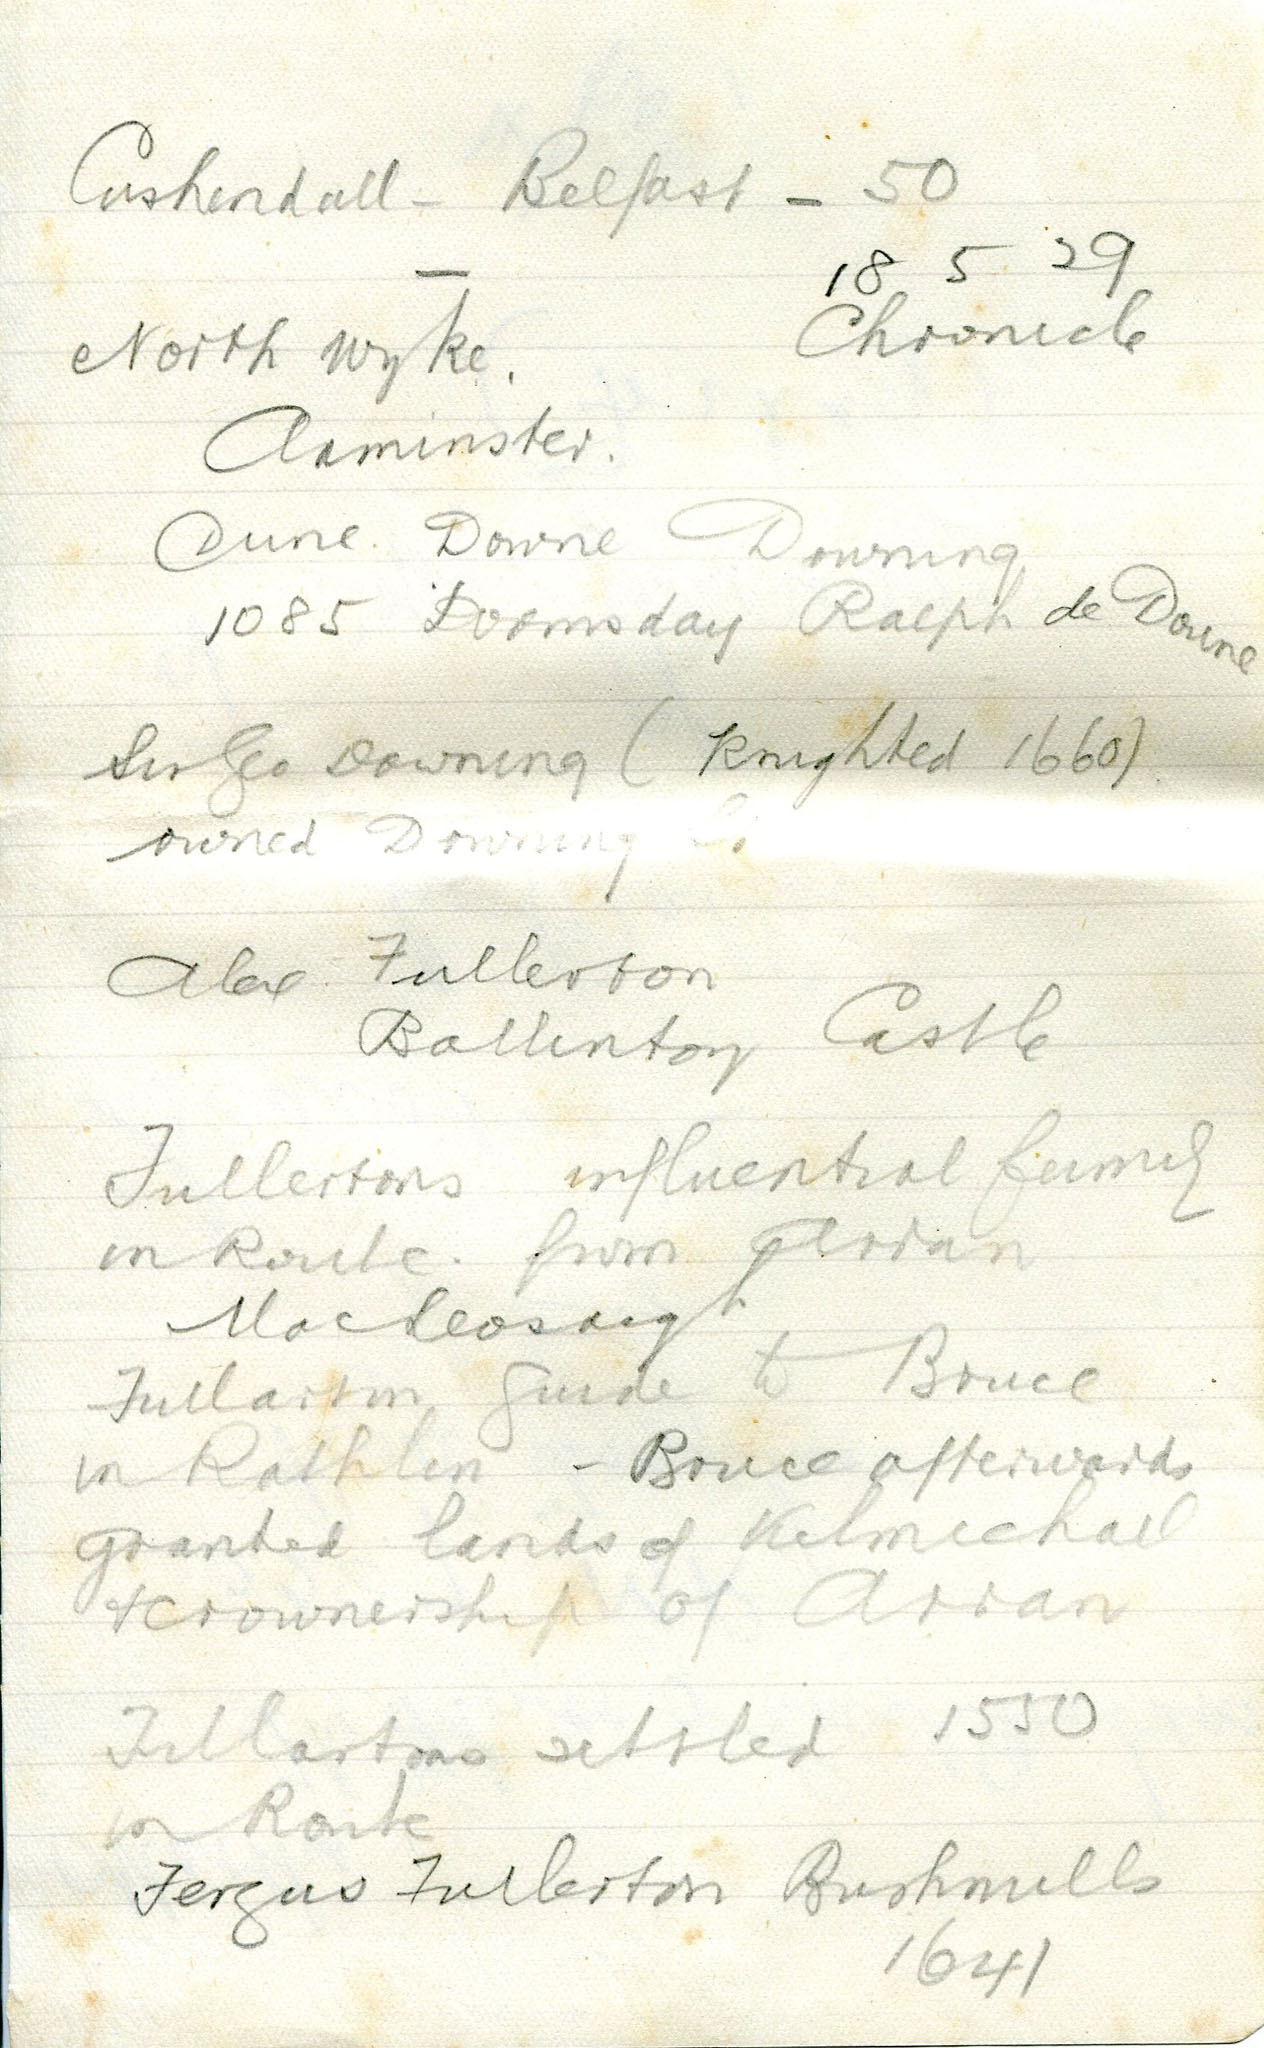 Cushendall - Belfast - 50
18 5 29
Chronicle
North Wyke.
Axminster.
Dune. Downe Downing
1085 Doomsday Ralph de Doune
Sir Geo Downing (Knighted 1660)
owned Downing St
Alex. Fullerton
Ballintoy Castle
Fullertons influential family
in Route. from Arran
Fullarton guide to Bruce
in Rathlin - Bruce afterwards
granted lands of Kilmichael
& crownership of Arran
Fullartons settled 1550
in Route
Fergus Fullerton Bushmills
1641